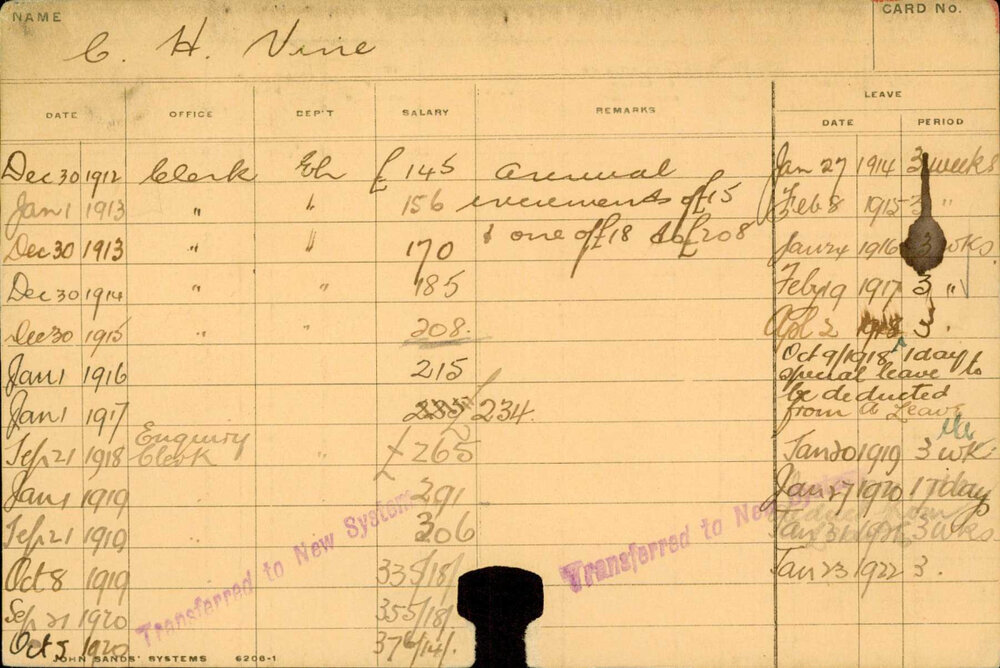 NAME
CARD No.
C. H. Vine
LEAVE
DATE OFFICE DEP'T SALARY REMARKS DATE PERIOD
Dec 30 1912 Clerk £145 Annual Jan 27 1914 3 weeks
Jan 1 1913 " " 156 increments of £15 Feb 8 1915 3 "
Dec 30 1913 " " 170 & one of £18 to £208 Jan 24 1916 3 wks.
Dec 30 1914 " " 185 Feby 19 1917 3 "
Dec 30 1915 " " 208. 1918 3.
Jan 1 1916 215 Oct 9/1918 1 day
special leave to
Jan 1 1917 234. be deducted
from A Leave
Enquiry
Sep. 21 1918 Clerk " £265 Jan 20 1919 3 wks
Jan 1 1919 291 Jan 27 1920 17 day
Sep. 21 1919 306 Jan 31 3 wks
Oct 8 1919 335/18/ Jan 23 1922 3.
Sep 21 1920 355/18/
Oct 5 1920 376/14/.
Transferred to New System
Transferred to New System
JOHN SANDS' SYSTEMS 6206-1